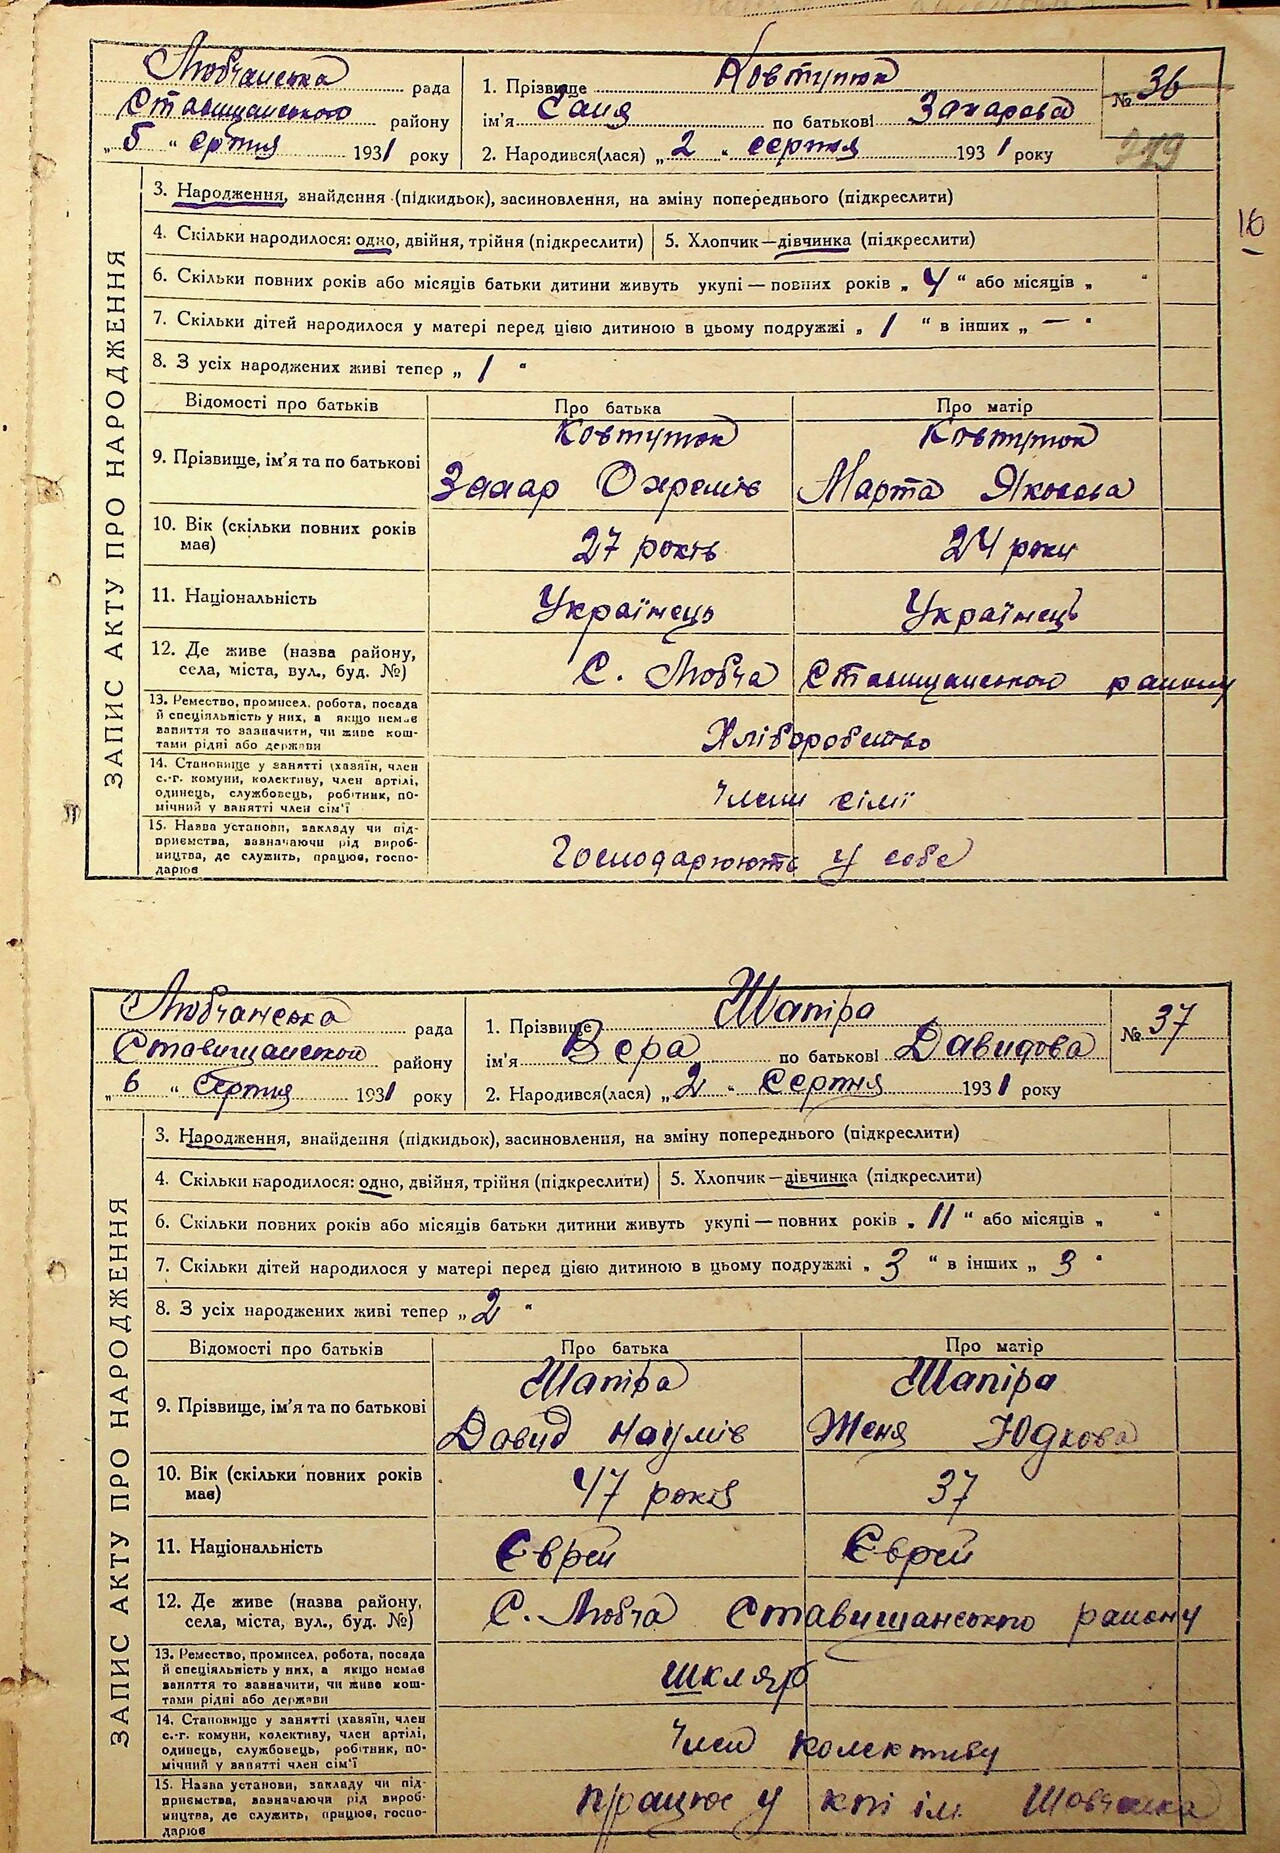 Любчанська рада
Ставищанського району
„ 5 “ серпня 1931 року
1. Прізвище Ковтунюк
ім'я Ганя по батькові Захарова
2. Народився(лася) „ 2 “ серпня 1931 року
№ 36
219
16
ЗАПИС АКТУ ПРО НАРОДЖЕННЯ
3. Народження, знайдення (підкидьок), засиновлення, на зміну попереднього (підкреслити)
4. Скільки народилося: одно, двійня, трійня (підкреслити) 5. Хлопчик—дівчинка (підкреслити)
6. Скільки повних років або місяців батьки дитини живуть укупі — повних років „ 4 “ або місяців „ “
7. Скільки дітей народилося у матері перед цією дитиною в цьому подружжі „ 1 “ в інших „ — “
8. З усіх народжених живі тепер „ 1 “
Відомості про батьків Про батька Про матір
Ковтунюк Ковтунюк
9. Прізвище, ім'я та по батькові Захар Охремів Марта Яковева
10. Вік (скільки повних років має) 27 років 24 роки
11. Національність Українець Українець
12. Де живе (назва району, села, міста, вул., буд. №) С. Любча Ставищанського району
13. Ремество, промисел, робота, посада
й спеціяльність у них, а якщо немає
заняття то зазначити, чи живе кош-
тами рідні або держави
Хліборобство
14. Становище у занятті (хазяїн, член
с.-г. комуни, колективу, член артілі,
одинець, службовець, робітник, по-
мічний у занятті член сім'ї
Члени сімї
15. Назва установи, закладу чи під-
приємства, зазначаючи рід вироб-
ництва, де служить, працює, госпо-
дарює
Господарюють у себе
Любчанська рада
Ставищанської району
„ 6 “ серпня 1931 року
1. Прізвище Шапіра
ім'я Вера по батькові Давидова
2. Народився(лася) „ 2 “ Серпня 1931 року
№ 37
ЗАПИС АКТУ ПРО НАРОДЖЕННЯ
3. Народження, знайдення (підкидьок), засиновлення, на зміну попереднього (підкреслити)
4. Скільки народилося: одно, двійня, трійня (підкреслити) 5. Хлопчик—дівчинка (підкреслити)
6. Скільки повних років або місяців батьки дитини живуть укупі — повних років „ 11 “ або місяців „ “
7. Скільки дітей народилося у матері перед цією дитиною в цьому подружжі „ 3 “ в інших „ 3 “
8. З усіх народжених живі тепер „ 2 “
Відомості про батьків Про батька Про матір
Шапіра Шапіра
9. Прізвище, ім'я та по батькові Давид Наумів Женя Юдкова
10. Вік (скільки повних років має) 47 років 37
11. Національність Єврей Єврей
12. Де живе (назва району, села, міста, вул., буд. №) С. Любча Ставищанського району
13. Ремество, промисел, робота, посада
й спеціяльність у них, а якщо немає
заняття то зазначити, чи живе кош-
тами рідні або держави
шкляр
14. Становище у занятті (хазяїн, член
с.-г. комуни, колективу, член артілі,
одинець, службовець, робітник, по-
мічний у занятті член сім'ї
Член колективу
15. Назва установи, закладу чи під-
приємства, зазначаючи рід вироб-
ництва, де служить, працює, госпо-
дарює
працює у ім. Шевченка